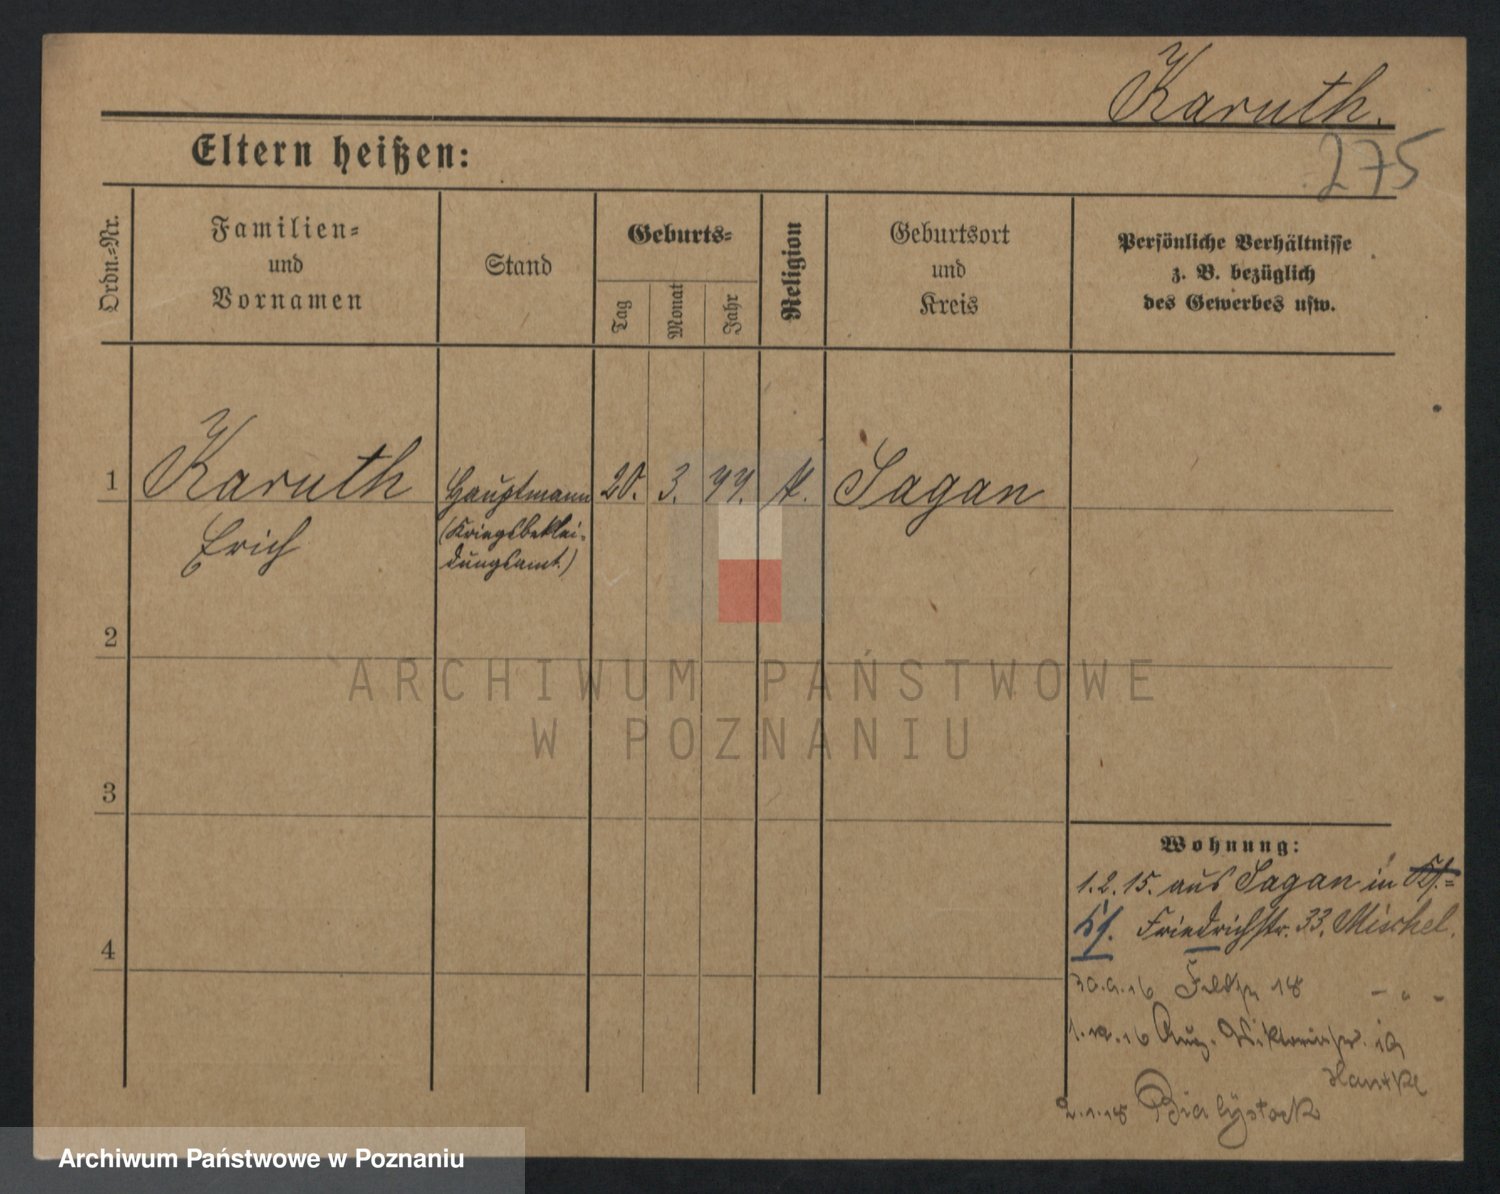 Karuth.
275
Eltern heißen:
Ordn.-Nr.
Familien-
und
Vornamen
Stand
Geburts-
Tag
Monat
Jahr
Religion
Geburtsort
und
Kreis
Persönliche Verhältnisse
z. B. bezüglich
des Gewerbes usw.
1
Karuth
Erich
Hauptmann
(Kriegsbeklei-
dungsamt.)
20. 3. 77.
Sagan
2
3
4
Wohnung:
1.2.15. aus Sagan in
Friedrichstr. 33. Mischel.
30.9.16 18 - " -
1. .16 Aug. Viktoriastr.
Hantke
2.1.18 Bialystock
ARCHIWUM PAŃSTWOWE
W POZNANIU
Archiwum Państwowe w Poznaniu